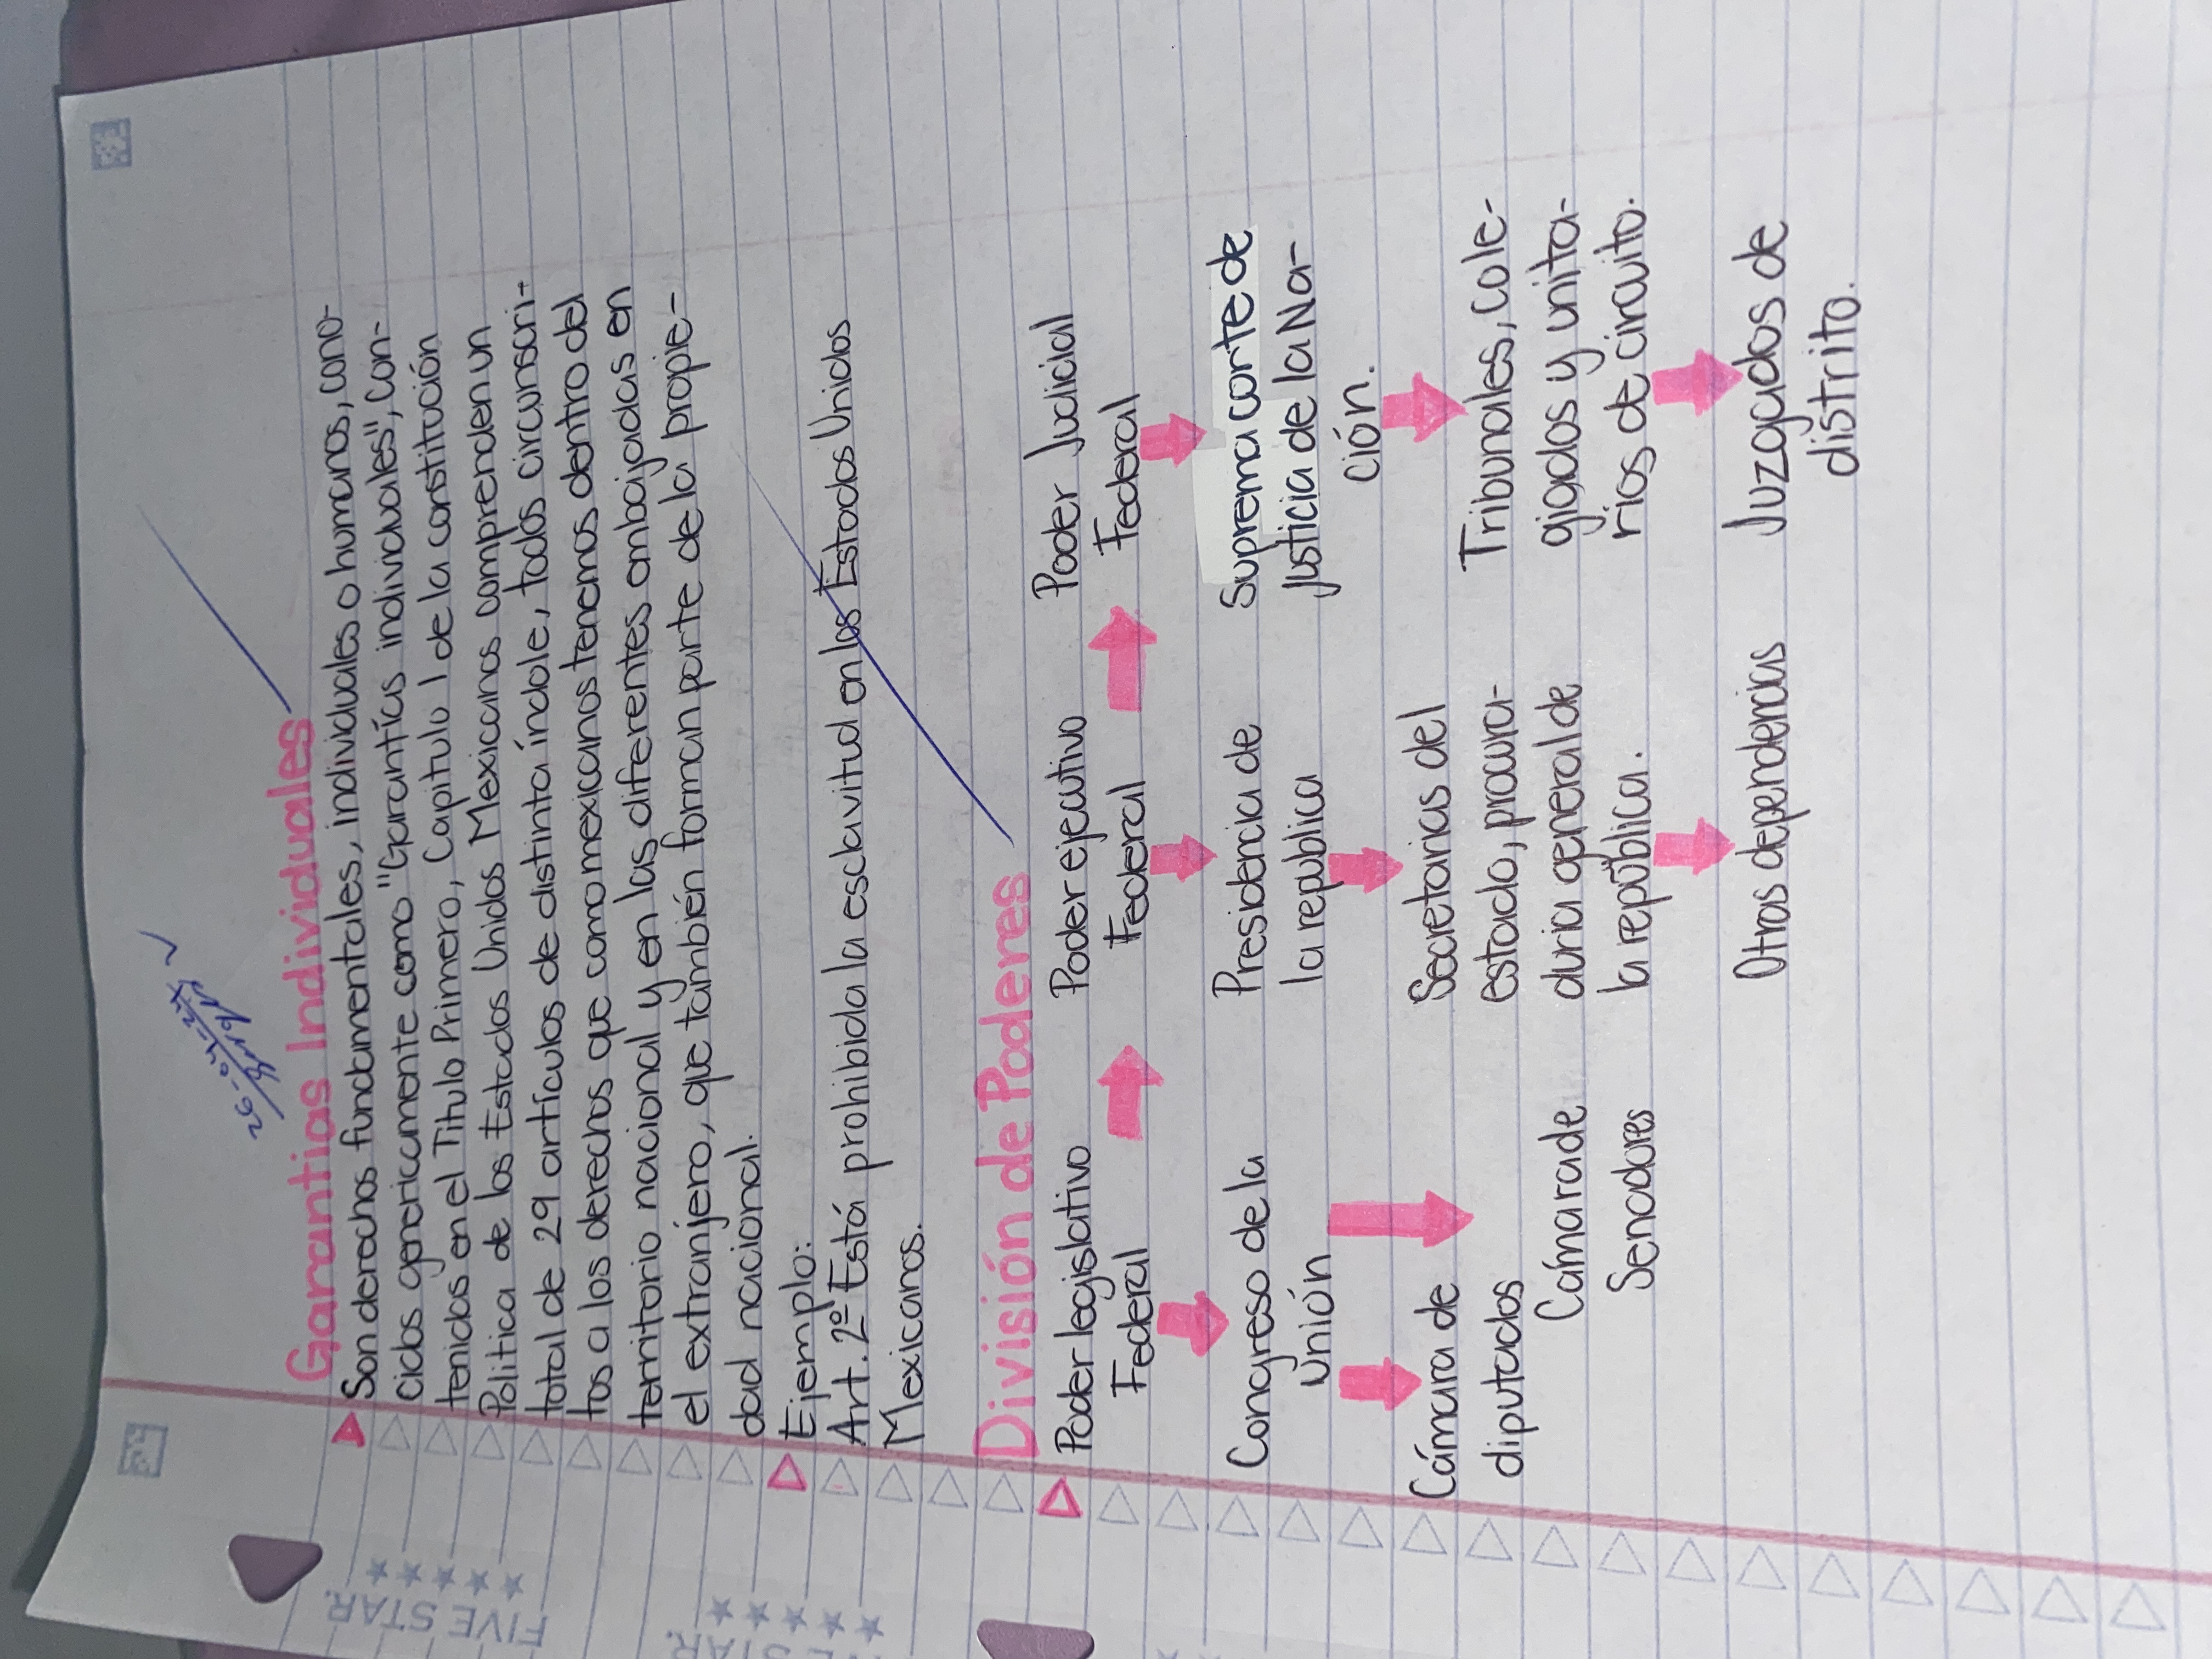 Garantias Individuales
Son derechos fundamentales, individuales o humanos, cono-
cidos genericamente como "Garantías individuales", con-
tenidos en el Titulo Primero, Capitulo I de la constitución
Politica de los Estados Unidos Mexicanos comprenden un
total de 29 artículos de distinta índole, todos circunscri-
tos a los derechos que como mexicanos tenemos dentro del
territorio nacional y en las diferentes embajadas en
el extranjero, que también forman parte de la propie-
dad nacional.
Ejemplo:
Art. 2º Está prohibida la esclavitud en los Estados Unidos
Mexicanos.
División de Poderes
Poder legislativo
Federal
Poder ejecutivo
Federal
Poder Judicial
Federal
Congreso de la
Unión
Presidencia de
la republica
Suprema corte de
justicia de la Na-
ción.
Cámara de
diputados
Cámara de
Senadores
Secretarias del
estado, procura-
duria general de
la república.
Tribunales, cole-
giados y unita-
rios de circuito.
Otras dependencias
Juzgados de
distrito.
FIVE STAR.
E STAR.